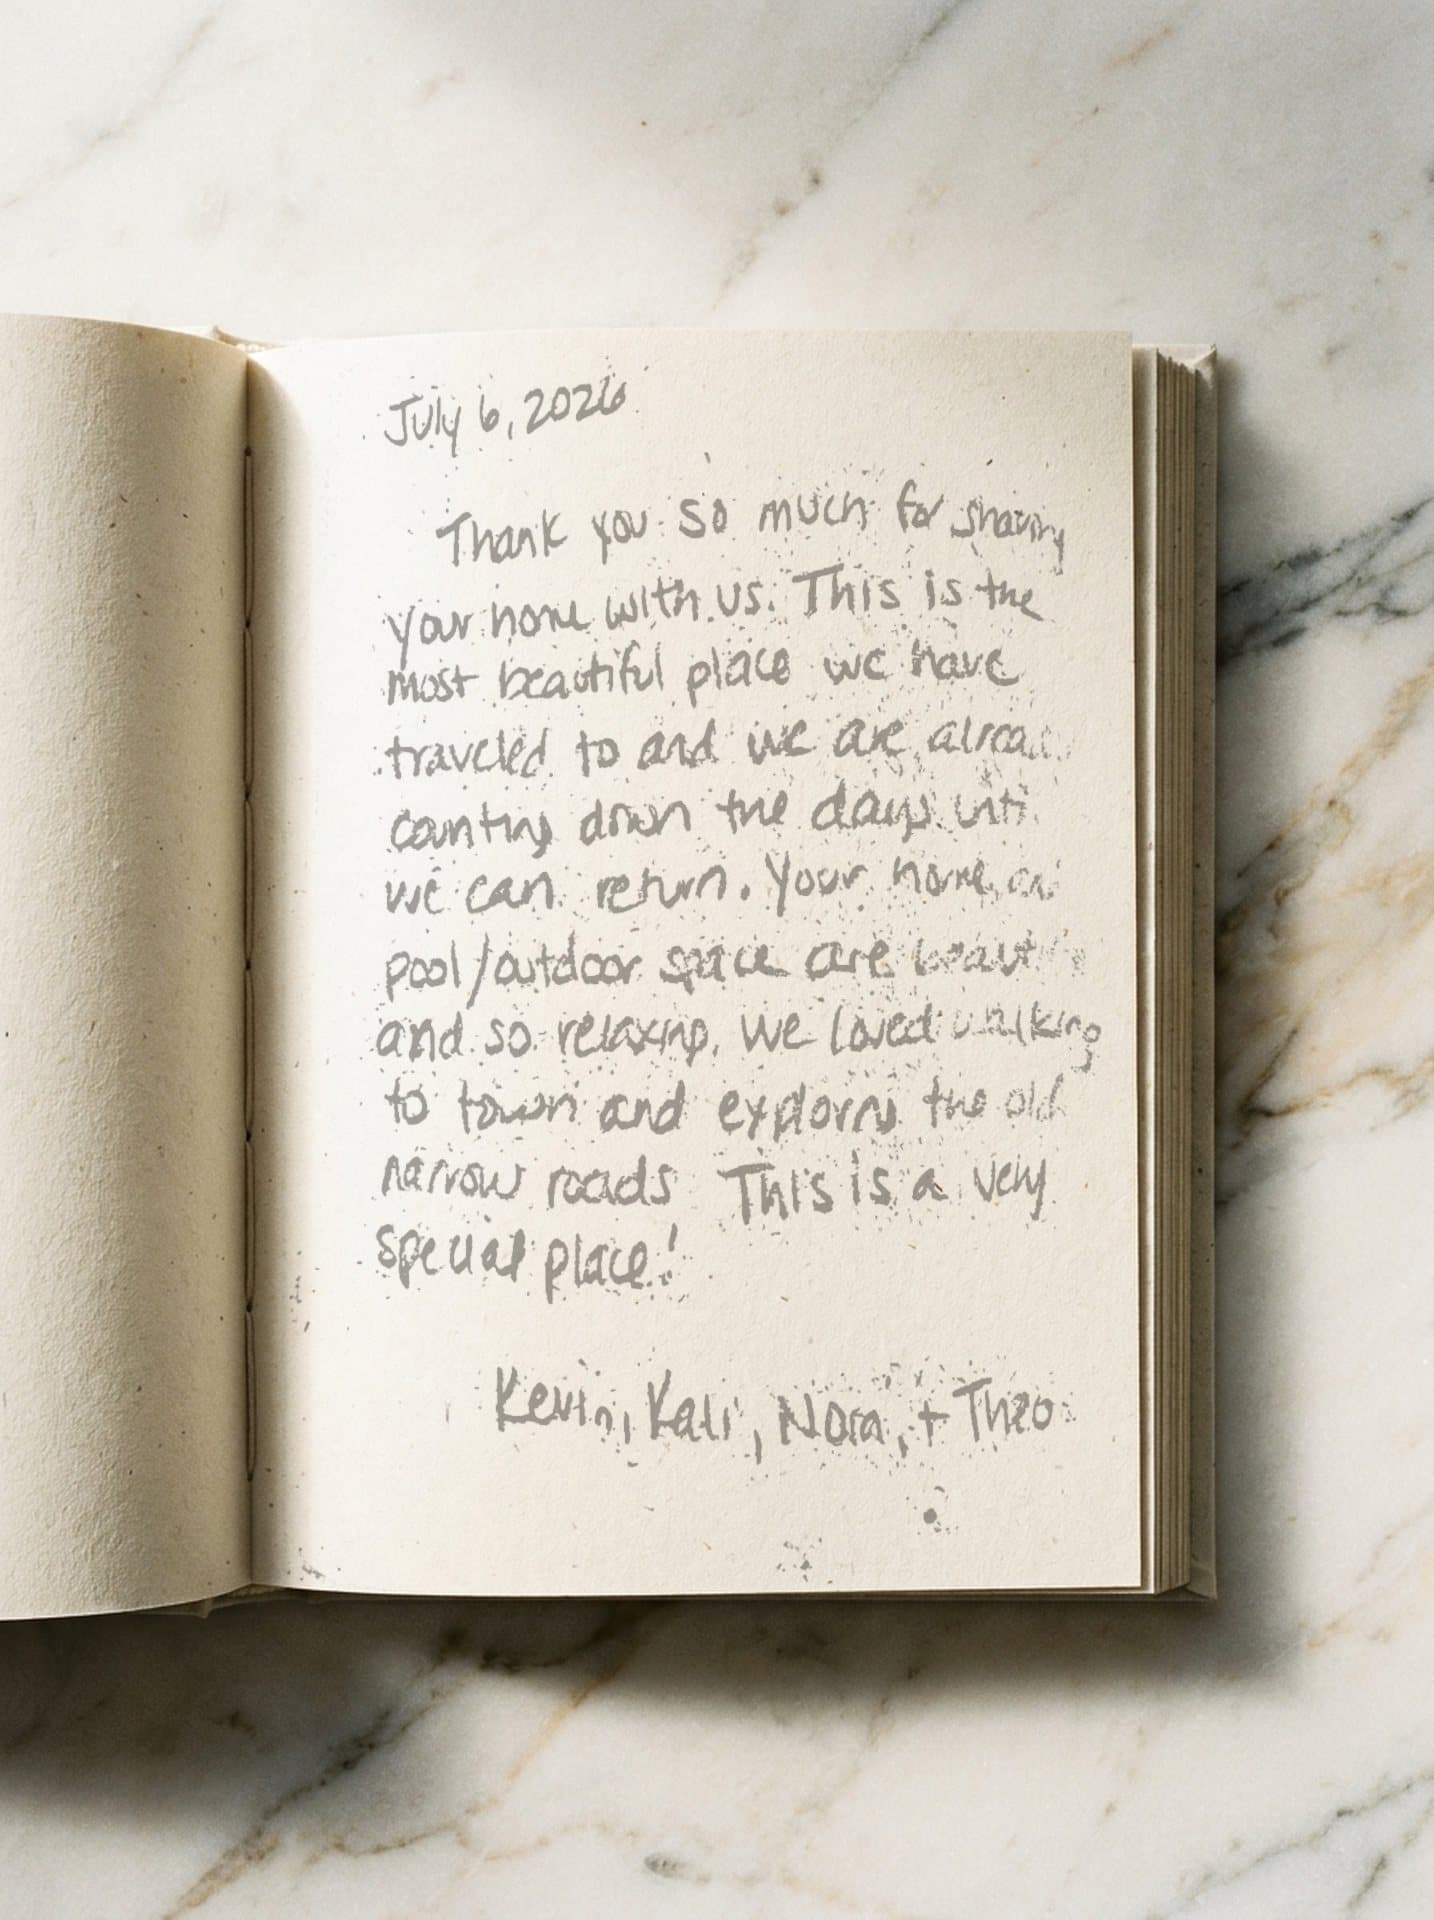 July 6, 2026
Thank you so much for sharing
your home with us. This is the
most beautiful place we have
traveled to and we are alrea
counting down the days unti
we can return. Your home, an
pool/outdoor space are beauti
and so relaxing. We loved walking
to town and exploring the old
narrow roads This is a very
special place!
Kevin, Kali, Nora, + Theo